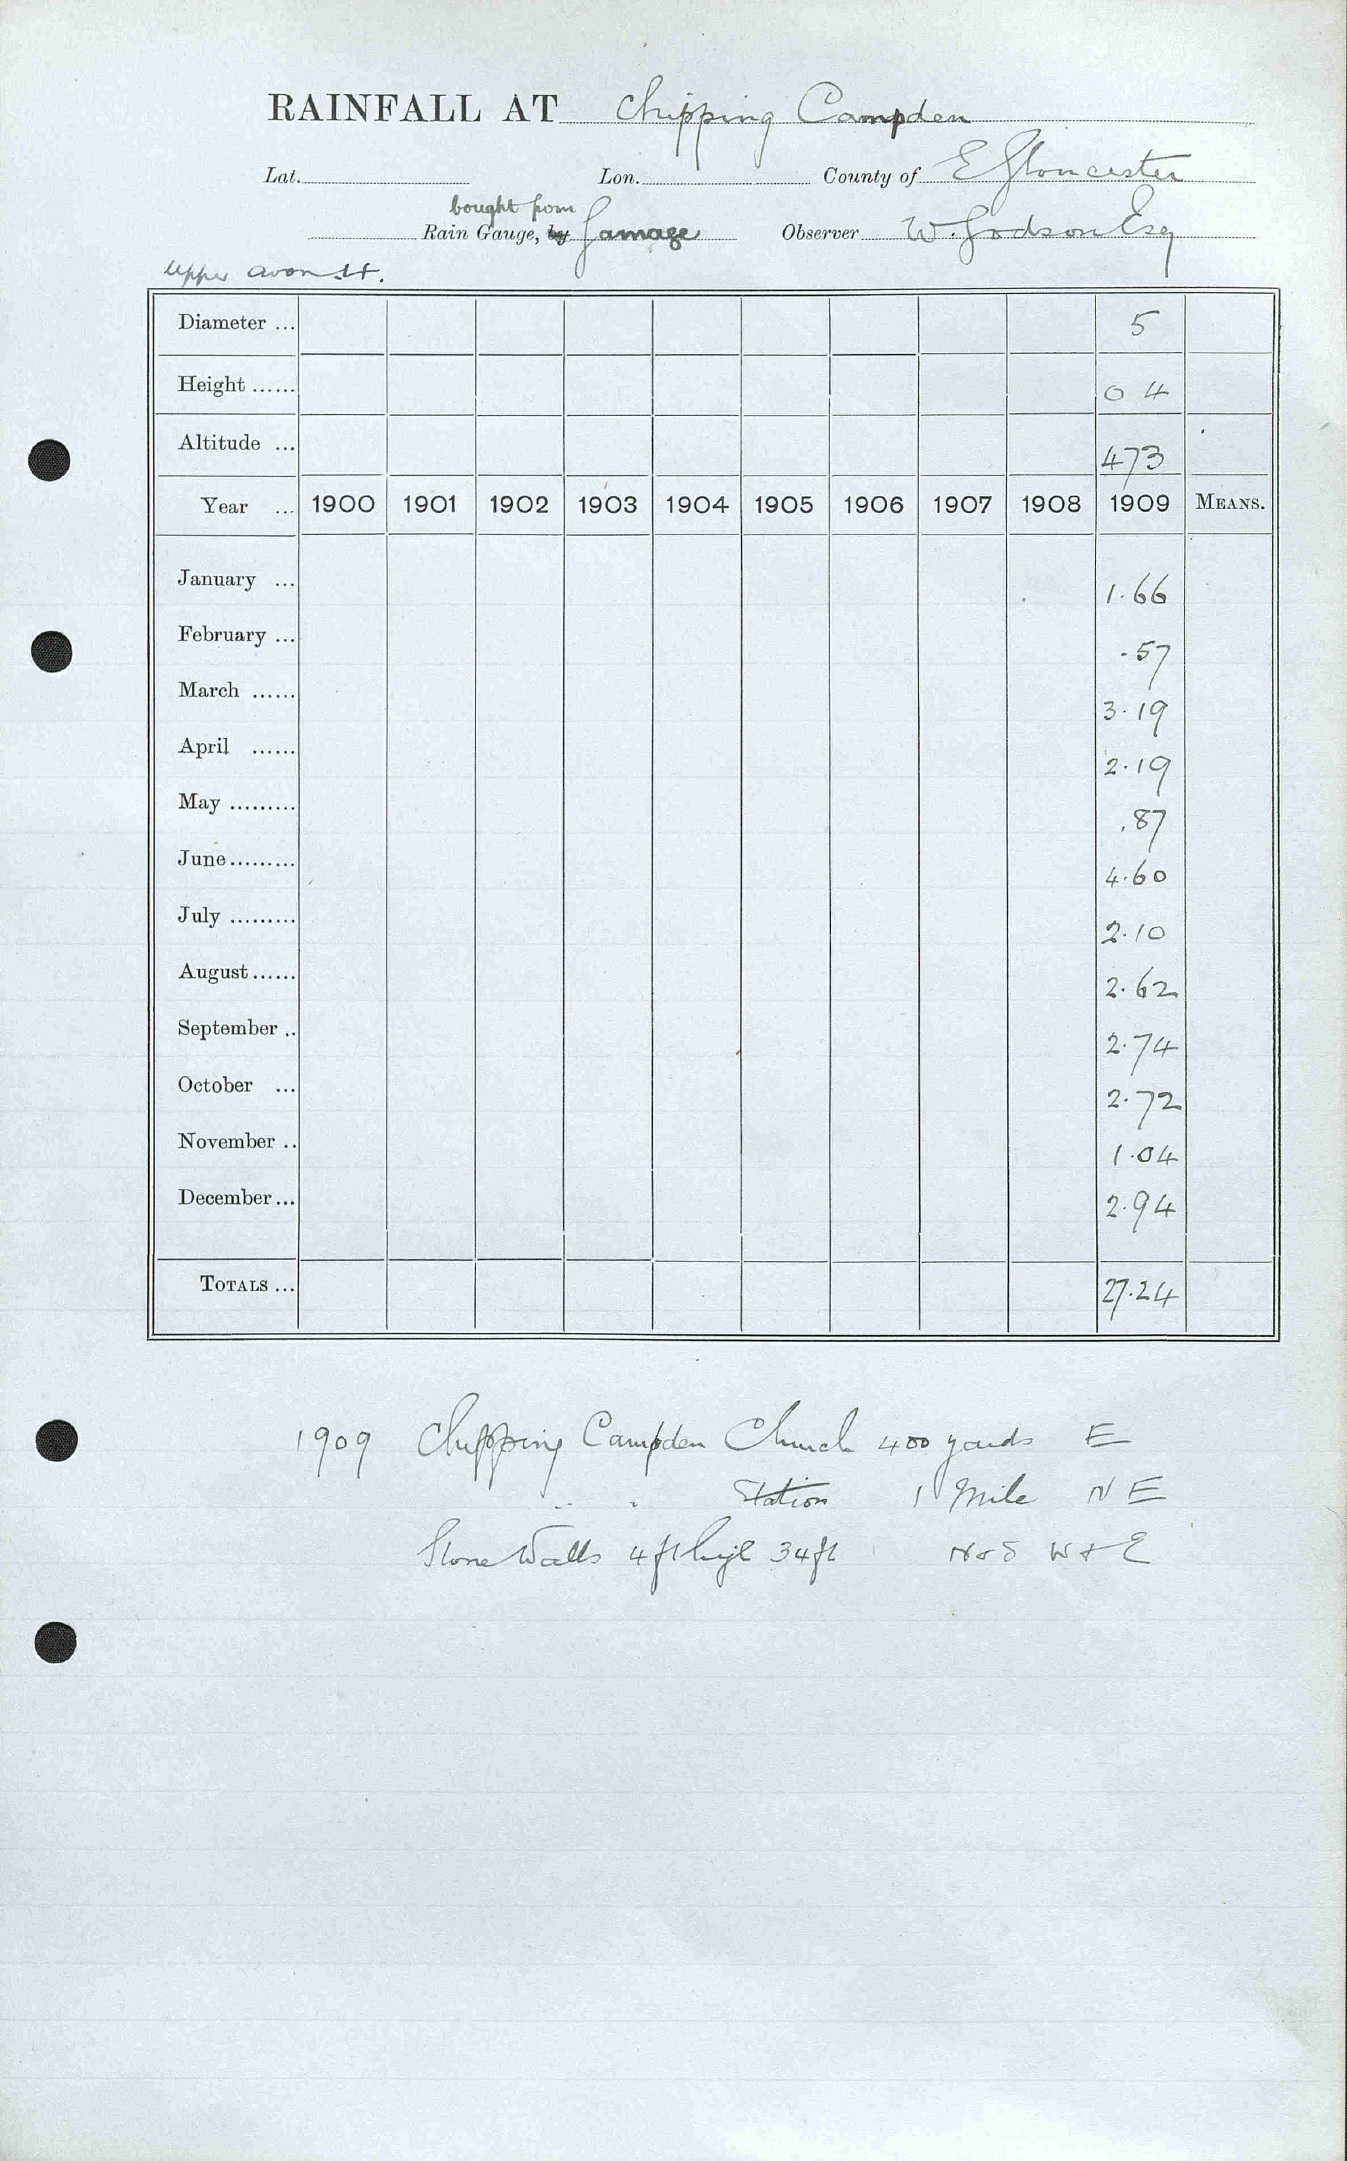 RAINFALL AT Chipping Campden
Lat. Lon. County of E Gloucester
bought from
Rain Gauge, by Gamage Observer W. Godson Esq
Upper Avon St.
Diameter ... 5
Height ...... 0 4
Altitude ... 473
Year ... 1900 1901 1902 1903 1904 1905 1906 1907 1908 1909 MEANS.
January ... 1.66
February ... .57
March ...... 3.19
April ...... 2.19
May ......... .87
June ......... 4.60
July ......... 2.10
August ...... 2.62
September .. 2.74
October ... 2.72
November .. 1.04
December ... 2.94
TOTALS ... 27.24
1909 Chipping Campden Church 400 yards E
" " Station 1 Mile N E
Stone Walls 4 ft high 34 ft N & S W & E